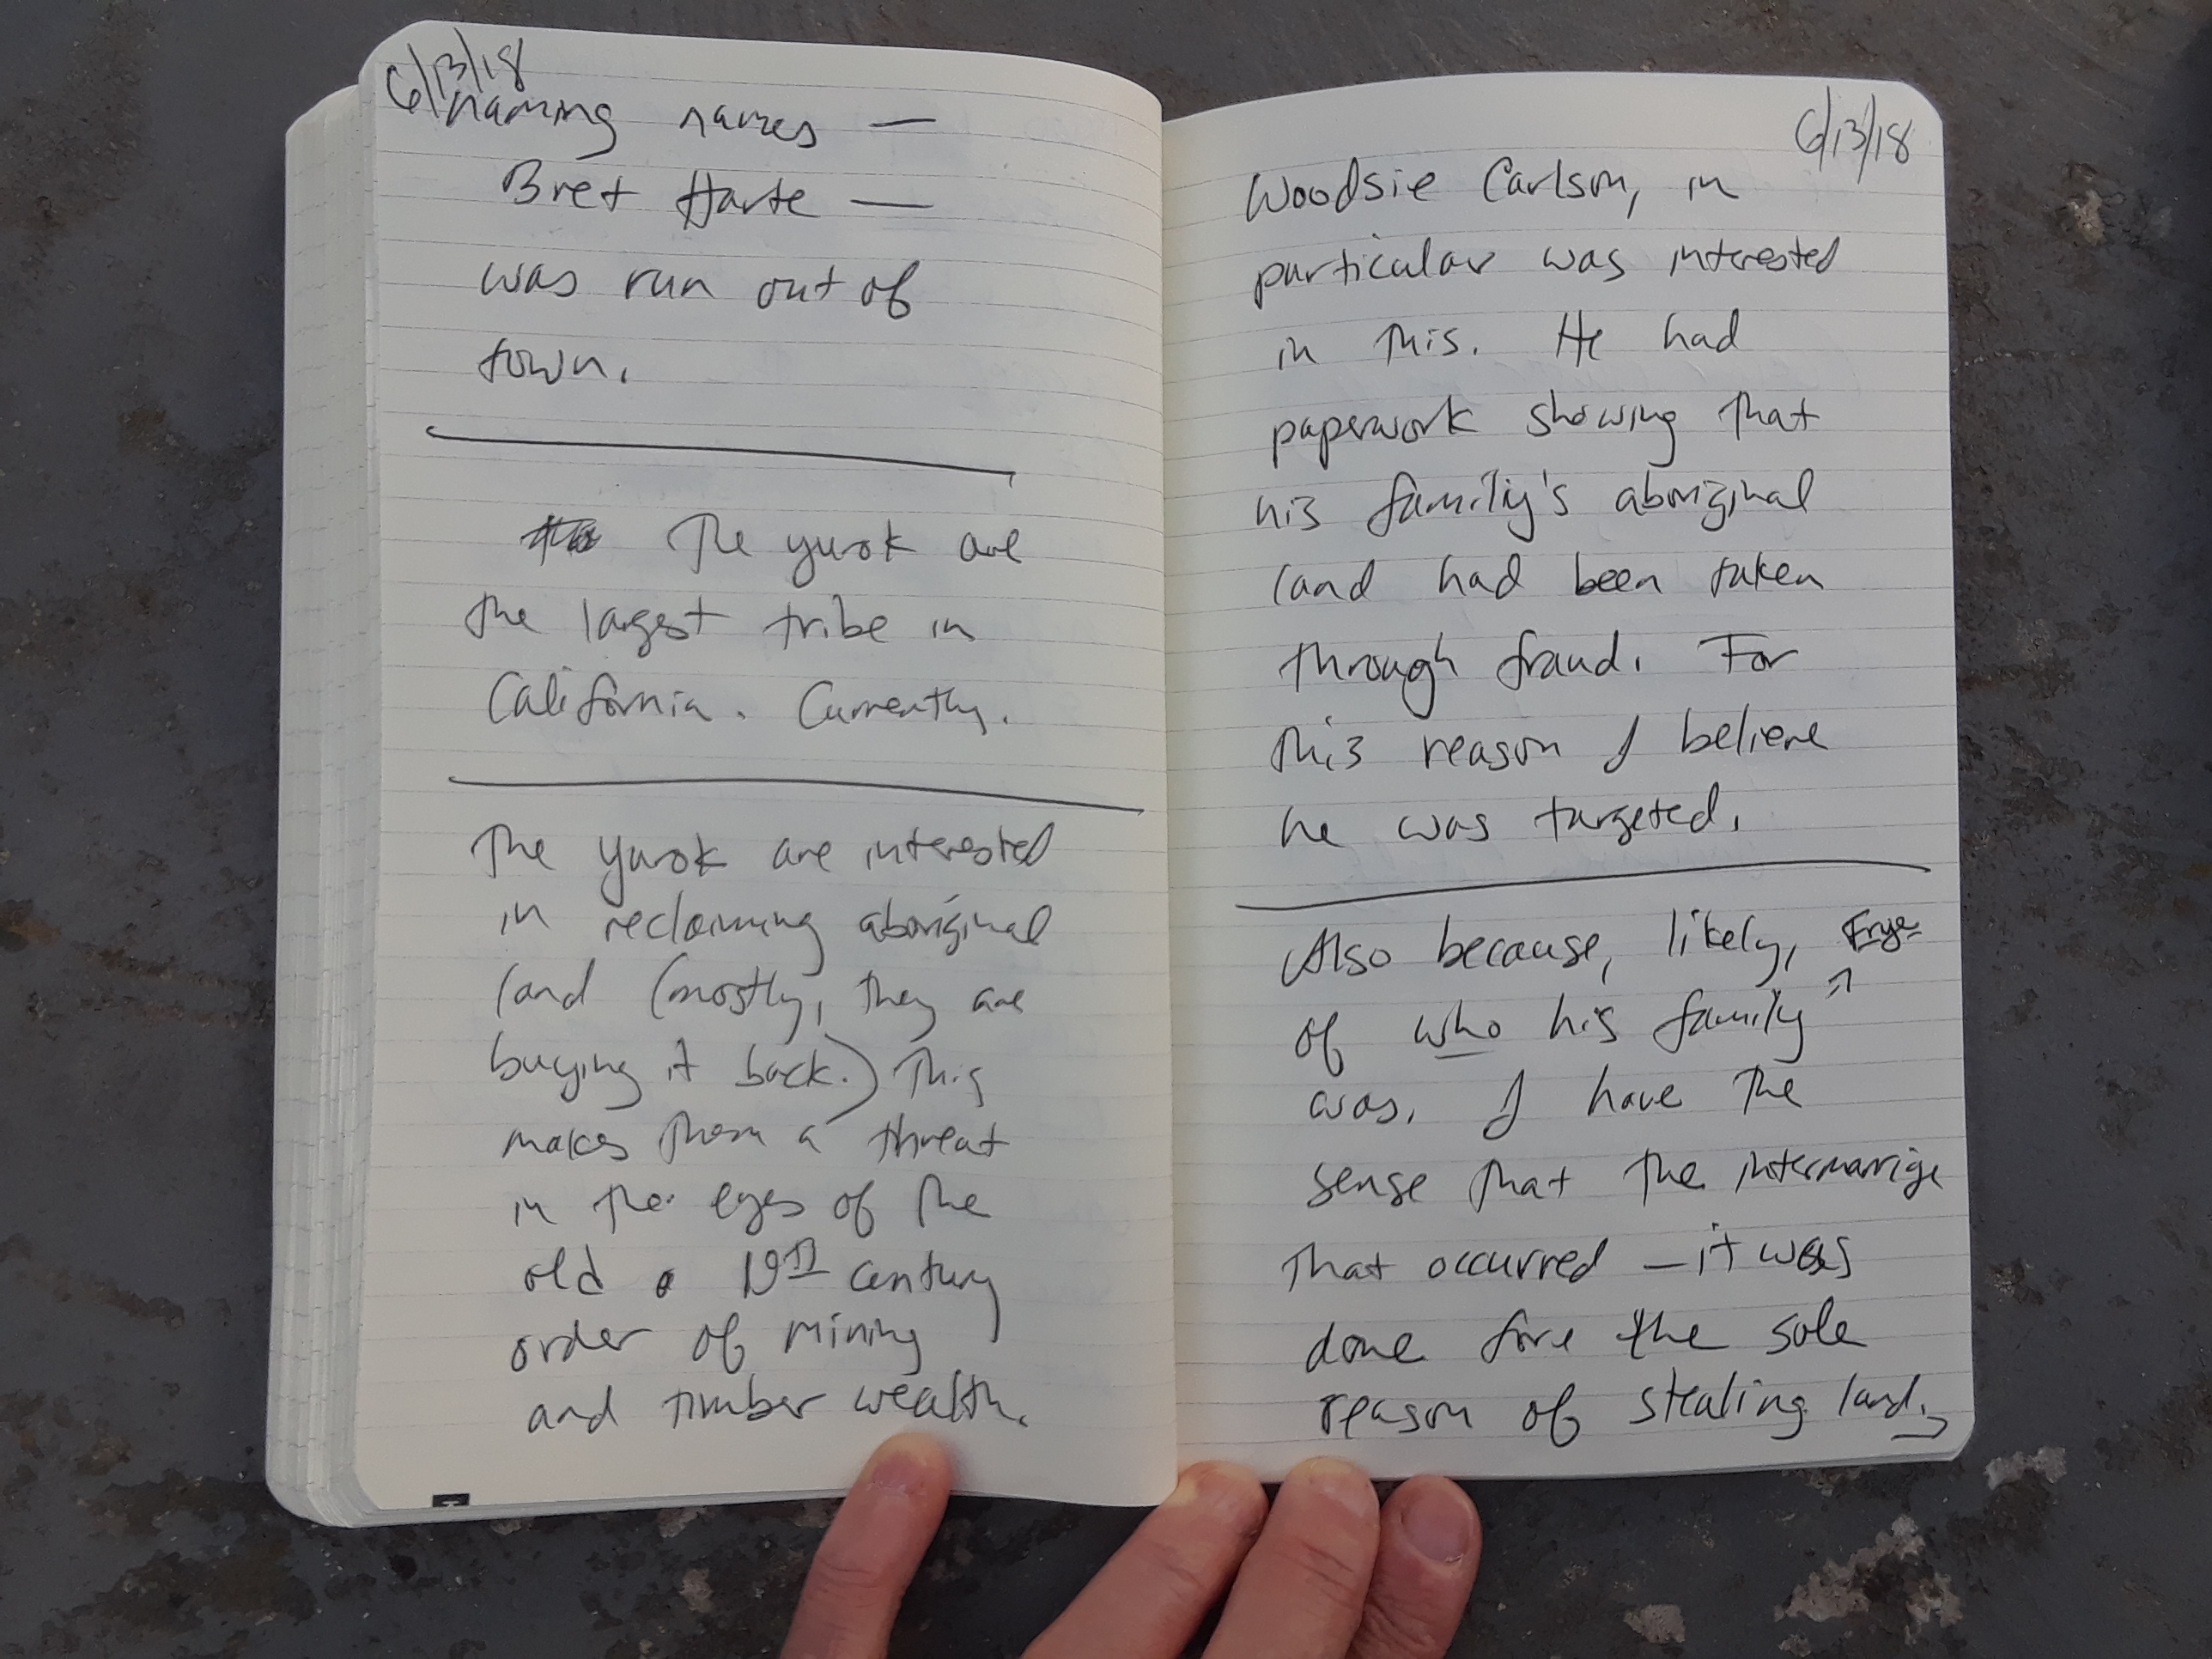 6/13/18
naming names —
Bret Harte —
was run out of
town.
The Yurok are
the largest tribe in
California. Currently.
The Yurok are interested
in reclaiming aboriginal
land (mostly, they are
buying it back.) This
makes them a threat
in the eyes of the
old 19th century
order of mining
and timber wealth.
6/13/18
Woodsie Carlson, in
particular was interested
in this. He had
paperwork showing that
his family's aboriginal
land had been taken
through fraud. For
this reason I believe
he was targeted.
Also because, likely, Frye
of who his family ↗
was. I have the
sense that the intermarrige
that occurred — it was
done fore the sole
reason of stealing land.